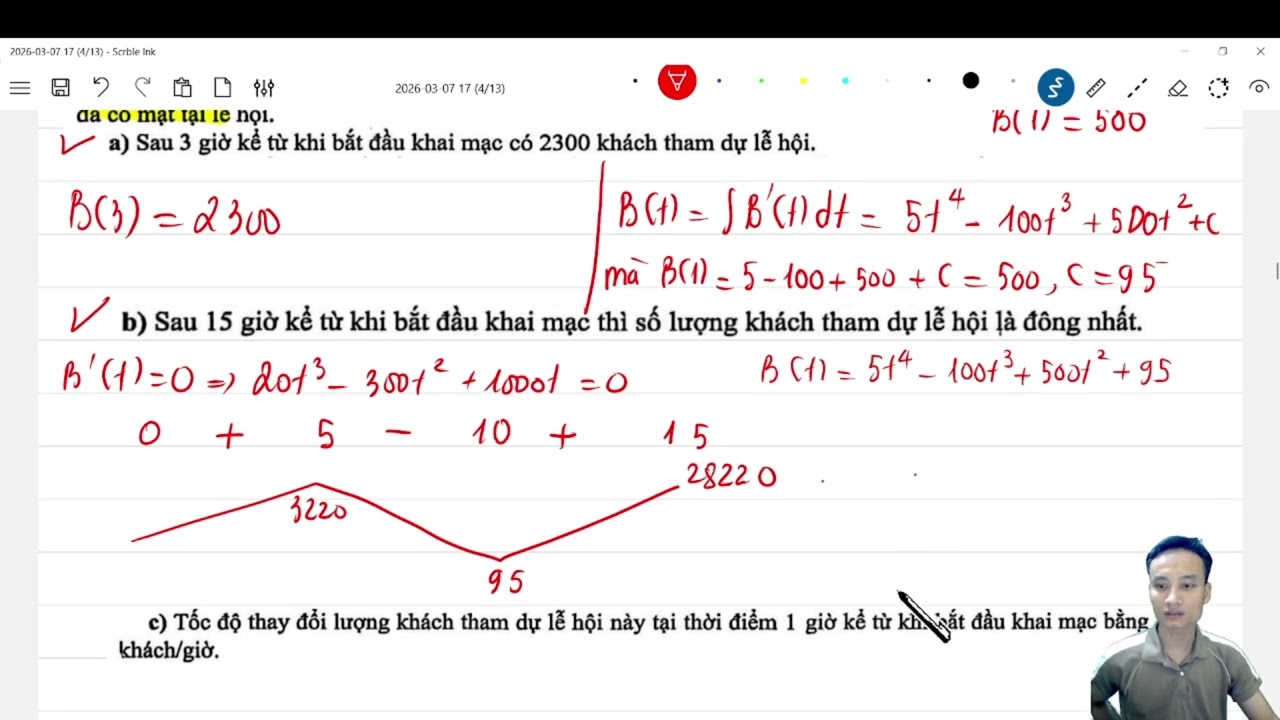 2026-03-07 17 (4/13) - Scrble Ink
2026-03-07 17 (4/13)
đã có mặt tại lễ hội.
B(1) = 500
a) Sau 3 giờ kể từ khi bắt đầu khai mạc có 2300 khách tham dự lễ hội.
B(3) = 2300
B(t) = ∫B'(t)dt = 5t⁴ - 100t³ + 500t² + C
mà B(1) = 5 - 100 + 500 + C = 500, C = 95
b) Sau 15 giờ kể từ khi bắt đầu khai mạc thì số lượng khách tham dự lễ hội là đông nhất.
B'(t) = 0 => 20t³ - 300t² + 1000t = 0
B(t) = 5t⁴ - 100t³ + 500t² + 95
0 + 5 - 10 + 15
28220
3220
95
c) Tốc độ thay đổi lượng khách tham dự lễ hội này tại thời điểm 1 giờ kể từ khi bắt đầu khai mạc bằng
khách/giờ.